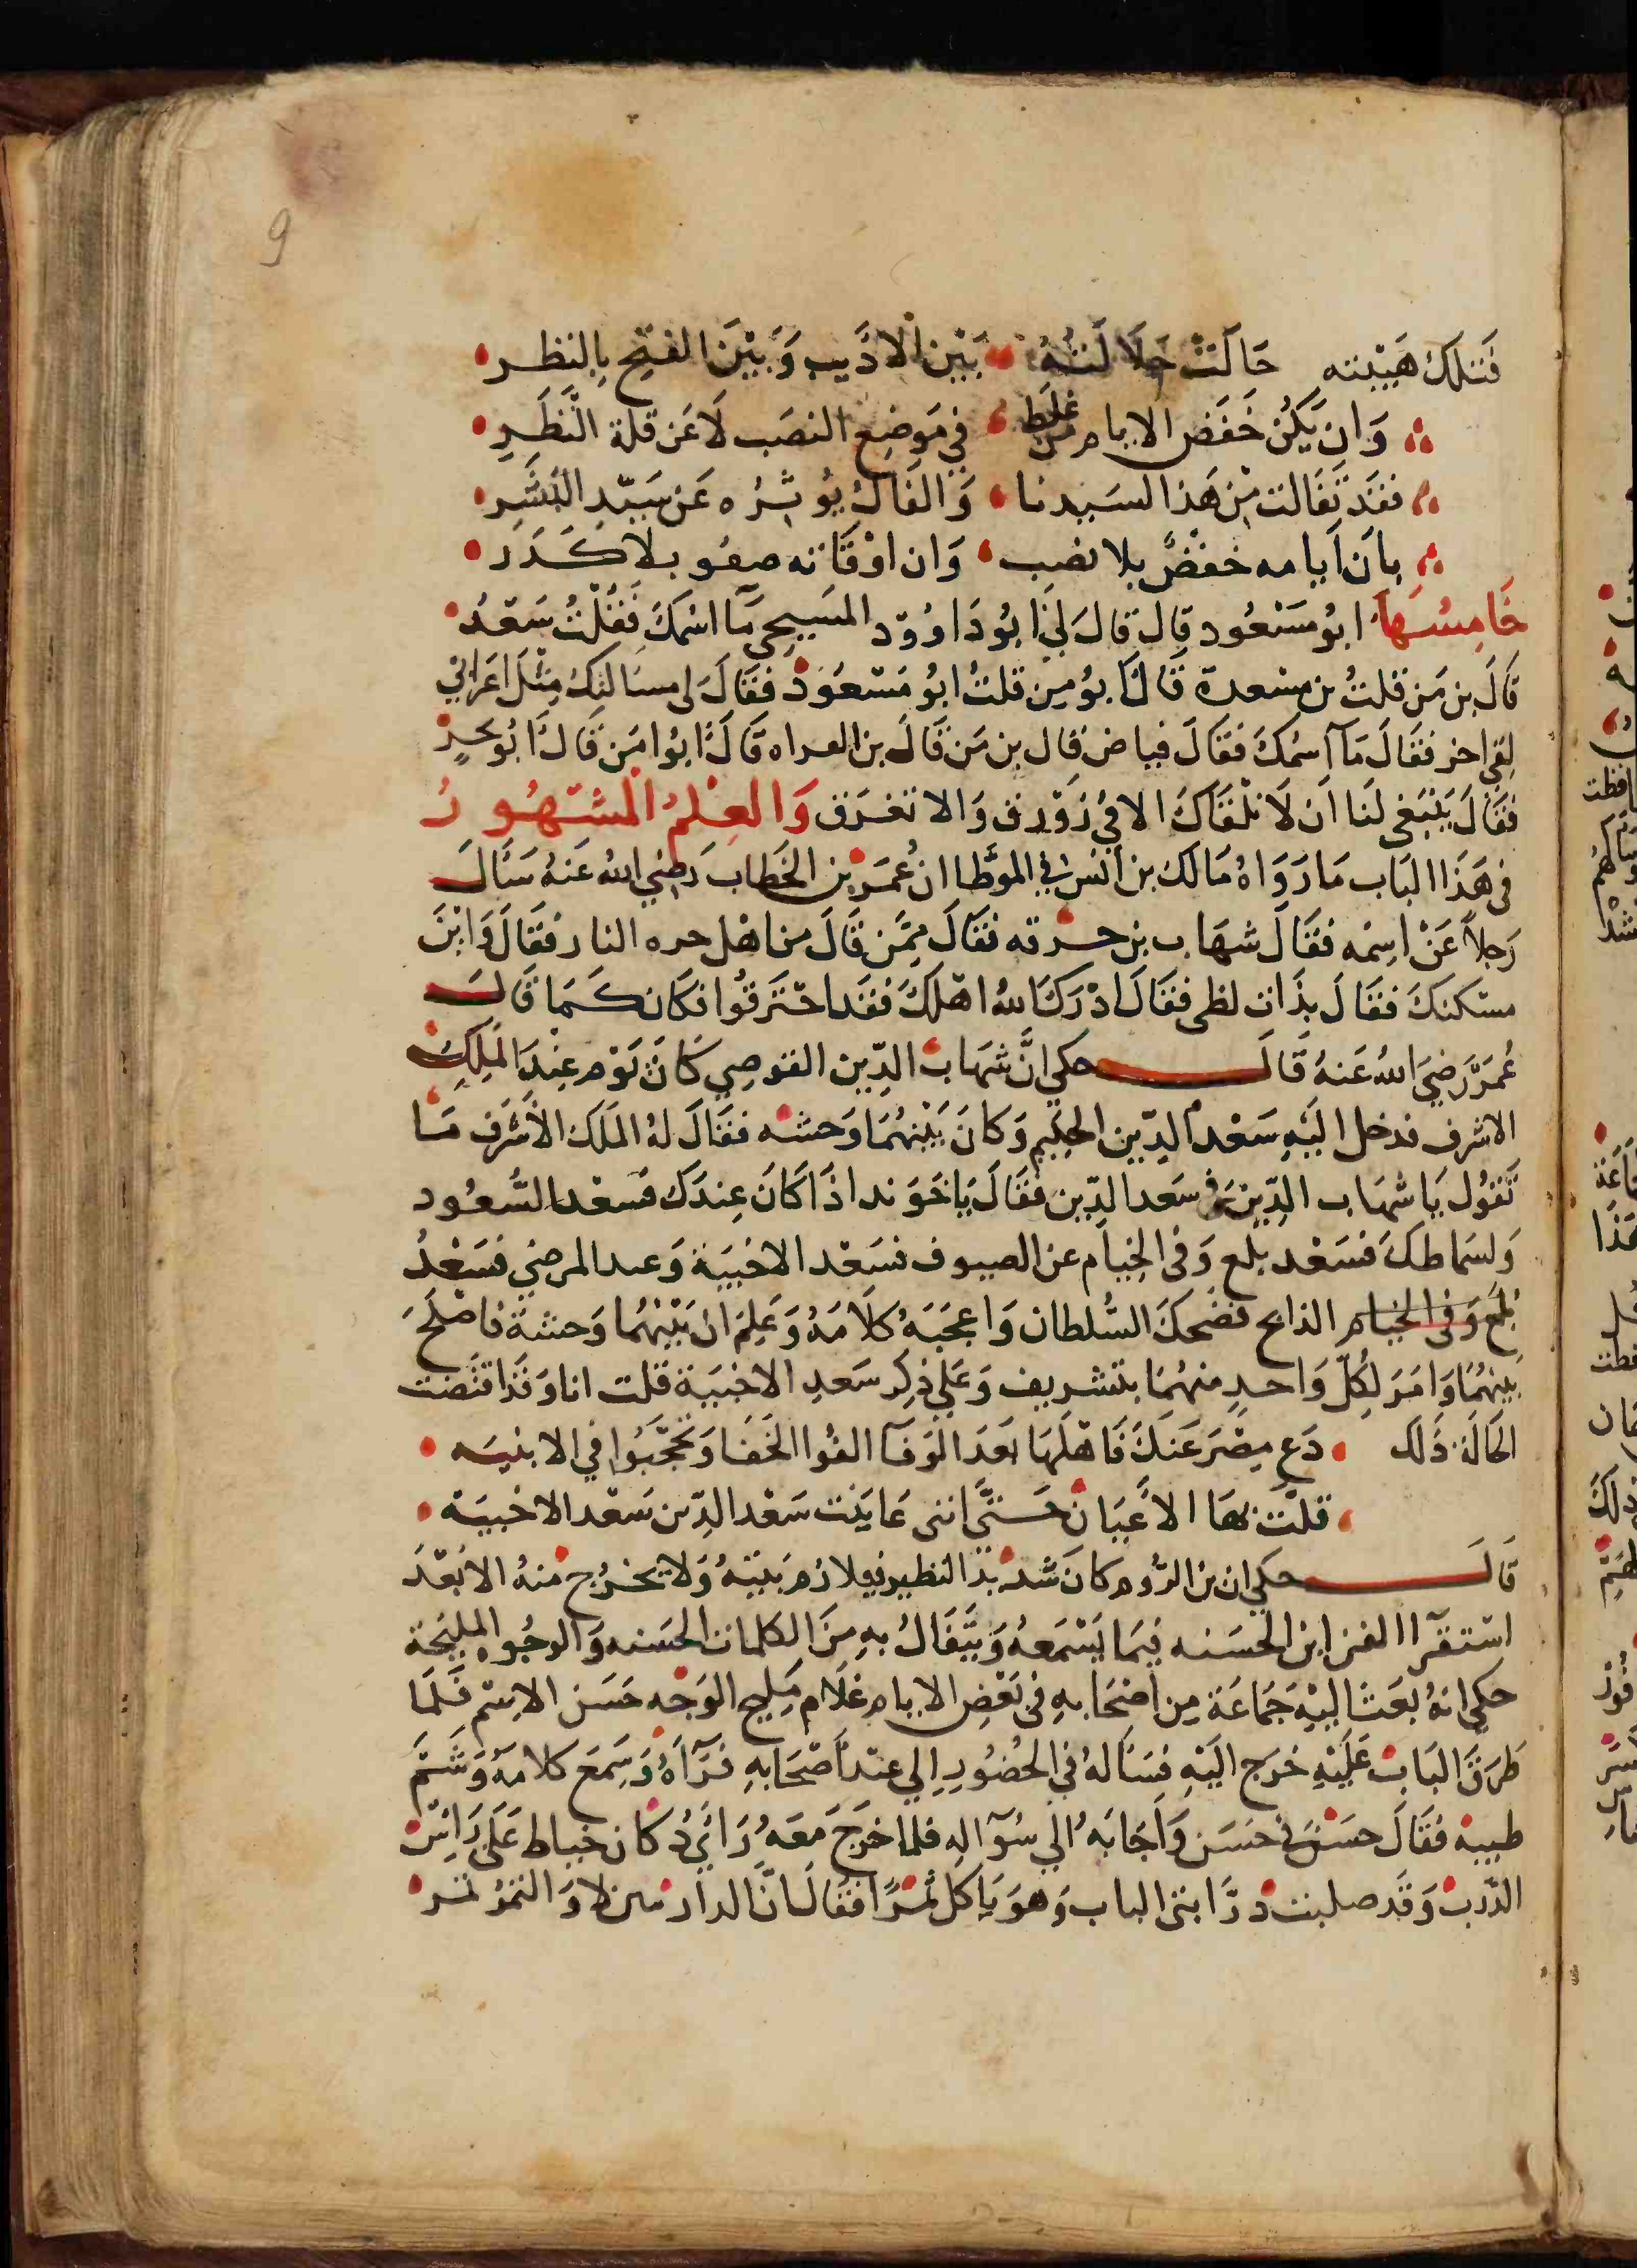 9
فَتلكَ هَيْبته حَالَتْ جلَالَتُهُ بَيْن الادَيب وَبَيْنَ الفتح بِالنظر
وَان يَكُن خَفَض الايام من غلَط في مَوضِع النصَب لَا عَن قلة النَّظَرِ
فقَد تفَالت مِن هَذا لسَيدنا وَالفَالُ يُوثرُه عَن سَيّدِ البَشَر
بان أيامه خفضٌ بلا نصب وَان اوْقَاته صفو بلا كَدَر
خَامِسُهَا ابُو مَسْعُود قال قالَ لي ابُو دَاوُود المسَيحي مَا اسْمكَ فَقُلْتُ سَعْدُ
قَالَ بن مَن قلتُ بن مسْعدة قَالَ ابُو مِين قلتُ ابُو مَسْعُود فقَالَ لى مسَالتك مِثْل اعرَابي
لقى اخر فقَالَ مَا اسمُكَ فقَالَ فياض قال بن مَن قَالَ بن العراه قَالَ ابُوا مَن قَالَ ابُو بحرٍ
فقَالَ يَنْبَغى لنَا ان لَا نلْقَاكَ الا في زَوْرق وَالا نغرَق وَالعِلمُ المشْهُورُ
فى هَذَا البَاب مَا رَوَاهُ مَالك بن أنس في الموطا ان عُمَر بن الخَطاب رَضي الله عَنهُ سَالَ
رَجلاً عَنْ اسِمْه فقَالَ شهَاب بن حرقه فقَالَ مِمَّن قَالَ من اهْل حره النار فقَالَ وَايْنَ
مسْكنكَ فقَالَ بذَات لظى فقَالَ ادْرَك الله اهْلكَ فقَد احْتَرقُوا فكان كَمَا قَالَ
عُمَرَ رَضيَ اللهُ عَنهُ قَالَ حكى انَّ شهَاب الدّين القوصي كَانَ يَوْم عِنْدَ المَلِكِ
الاشرف فدخل اليْهِ سَعْد الدّين الحكيم وَكانَ بَيْنهُمَا وَحشه فقَالَ لهُ المَلك الأشرَف مَا
تَقوُل يَا شهَاب الدّين في سَعد الدّين فقَالَ يَا خَوَند اذَا كَانَ عِندَك فسَعْد السُّعُود
وَلسَماطكَ فسَعْد بلع وَفى الخيَام عن الصيوف فسَعْد الاخْبيَة وَعند المرضي فسَعْدُ
بُلَعَ وَفى الخيام الذابح فضَحكَ السُّلطان وَاعجَبَهُ كلَامَهُ وَعَلِمَ ان بَيْنهُمَا وَحشة فَاصْلَحَ
بَينهُمَا وَامَر لكُلّ وَاحدٍ منهُمَا بتشريف وَعَلي ذِكر سَعدِ الاخبيَة قلت انا وَقَد اقتَضت
الحَالة ذَلك دَع مِصْرَ عَنكَ فَاهْلهَا بَعدَ الوَفَا الفُوا الخَفَا وَتحجَّبُوا في الابنيَه
قلّت بهَا الأعْيَان حَتَّي انني عَاينت سَعْد الدّين سَعْد الاخبيَة
قَالَ حكي ان بن الرُّوم كانَ شَديْد التطير فيلازم بَيْتهُ وَلَا يخرُج منهُ الا بَعْدَ
اسْتقرَا القراين الحَسَنه فِيمَا يَسْمَعهُ وَيَتَفَالُ بهِ مِنَ الكلمات الحَسنه وَالوجُوه المليحَة
حكي انهُ بعَث اليْهِ جَمَاعَة مِن اصْحَابهِ فى بَعْضِ الايام غلَام مَليح الوَجْه حَسَن الاسْم فلَمَا
طَرَقَ البَابَ عَلَيْهِ خرَج اليْهِ فسَالهُ في الحُضُورِ الي عنْد اصْحَابهِ فرَآهُ وَسَمعَ كلامهُ وَشَمَّ
طيبهُ فقَالَ حسَن في حسَن وَاجَابَهُ الي سُوَالهِ فلما خرَجَ مَعَهُ رَايَ دُكان خياط عَلى رَاسِ
الدّربْ وَقَد صلبت درَّابتي الباب وَهوَ يَاكل تمرًا فقَالَ انَّ الدار من لا وَالتمر تمر